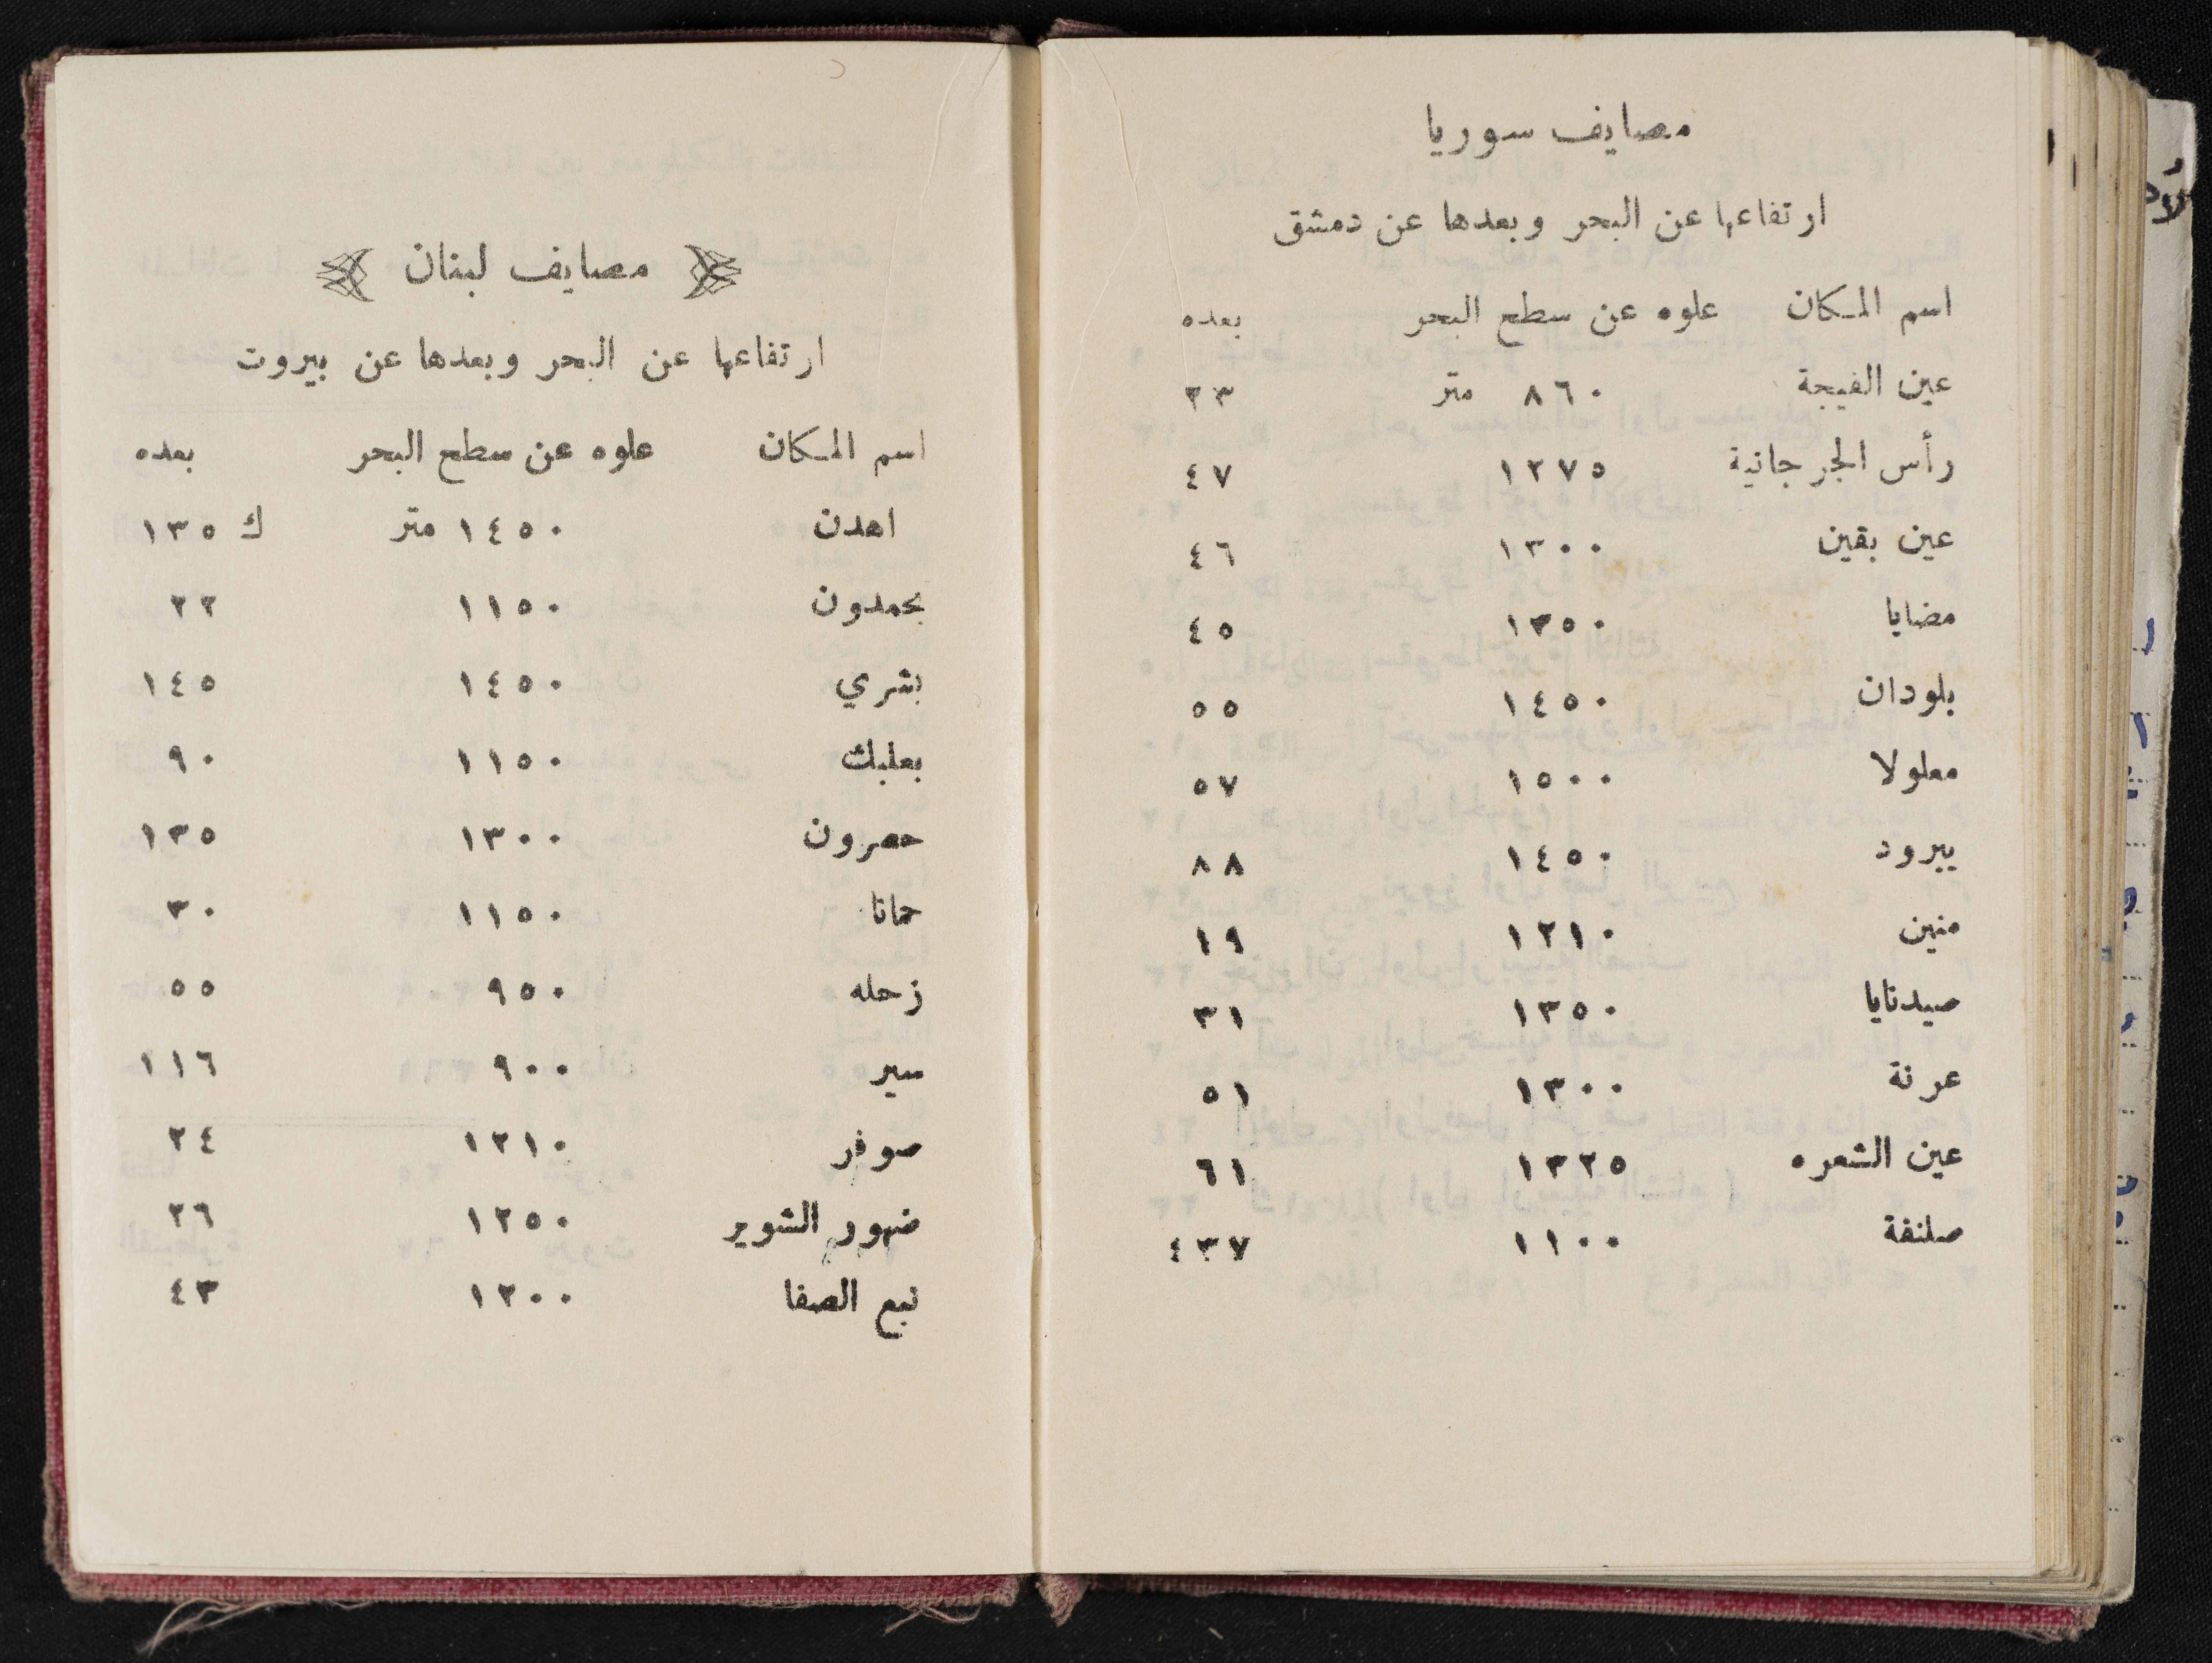 مصايف سوريا
ارتفاعها عن البحر وبعدها عن دمشق
اسم المكان علوه عن سطح البحر بعده
عين الفيجة ٨٦٠ متر ٢٣
رأس الجرجانية ١٢٧٥ ٤٧
عين بقين ١٣٠٠ ٤٦
مضايا ١٣٥٠ ٤٥
بلودان ١٤٥٠ ٥٥
معلولا ١٥٠٠ ٥٧
يبرود ١٤٥٠ ٨٨
منين ١٢١٠ ١٩
صيدنايا ١٣٥٠ ٣١
عرنة ١٣٠٠ ٥١
عين الشعره ١٣٢٥ ٦١
صلنفة ١١٠٠ ٤٣٧
مصايف لبنان
ارتفاعها عن البحر وبعدها عن بيروت
اسم المكان علوه عن سطح البحر بعده
اهدن ١٤٥٠ متر ك ١٣٥
بحمدون ١١٥٠ ٢٢
بشري ١٤٥٠ ١٤٥
بعلبك ١١٥٠ ٩٠
حصرون ١٣٠٠ ١٣٥
حمانا ١١٥٠ ٣٠
زحله ٩٥٠ ٥٥
سير ٩٠٠ ١١٦
صوفر ١٢١٠ ٢٤
ضهور الشوير ١٢٥٠ ٢٦
نبع الصفا ١٢٠٠ ٤٣